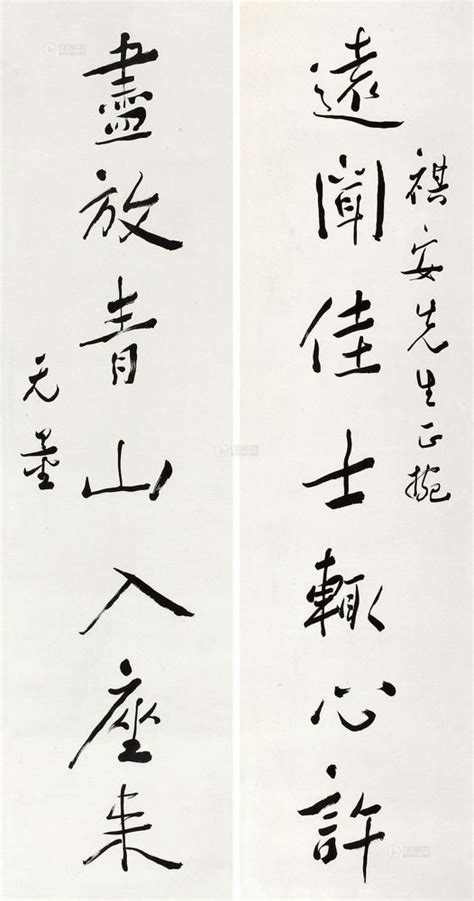 祺安先生正捥
遠聞佳士輒心許
盡放青山入座來
无量